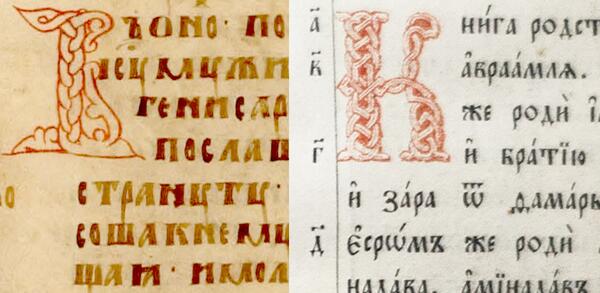 Въоно· по
исꙋмꙋжи
генисар
послаш
странꙋтꙋ·
сошакнемꙋ
щаꙗ · имол
а҃ Кни́га родст
в҃ а҆враа́млѧ.
же родѝ і҆
г҃ и҆ бра́тїю
и҆ за́ра ѿ ѳама́ры
д҃ Е҆срѡ́мъ же родѝ
нада́ва. а҆мїнада́въ